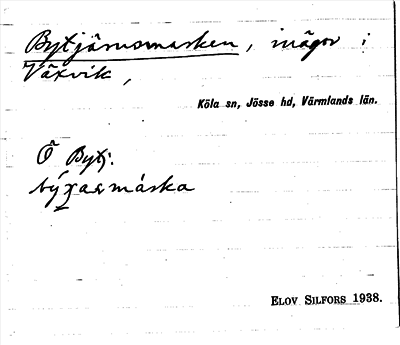 Bytjärnsmarken, mägor i
Växvik,
Köla sn, Jösse hd, Värmlands län.
Ö Bytj.
ELOV SILFORS 1938.